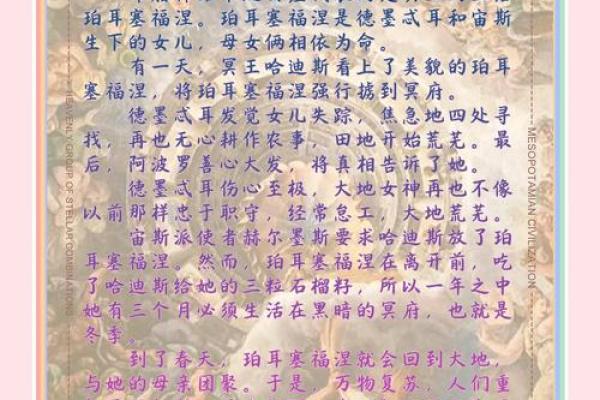 珀耳塞福涅。珀耳塞福涅是德墨忒耳和宙斯
生下的女儿，母女俩相依为命。
有一天，冥王哈迪斯看上了美貌的珀耳
塞福涅，将珀耳塞福涅强行掳到冥府。
德墨忒耳发觉女儿失踪，焦急地四处寻
找，再也无心耕作农事，田地开始荒芜。最
后，阿波罗善心大发，将真相告诉了她。
德墨忒耳伤心至极，大地女神再也不像
以前那样忠于职守，经常怠工，大地荒芜。
宙斯派使者赫尔墨斯要求哈迪斯放了珀
耳塞福涅。然而，珀耳塞福涅在离开前，吃
了哈迪斯给她的三粒石榴籽，所以一年之中
她有三个月必须生活在黑暗的冥府，也就是
冬季。
到了春天，珀耳塞福涅就会回到大地，
与她的母亲团聚。于是，万物复苏，人们重
HEAVENLY GROUP OF STELLAR COMBINATIONS
MESOPOTAMIAN CIVILIZATION